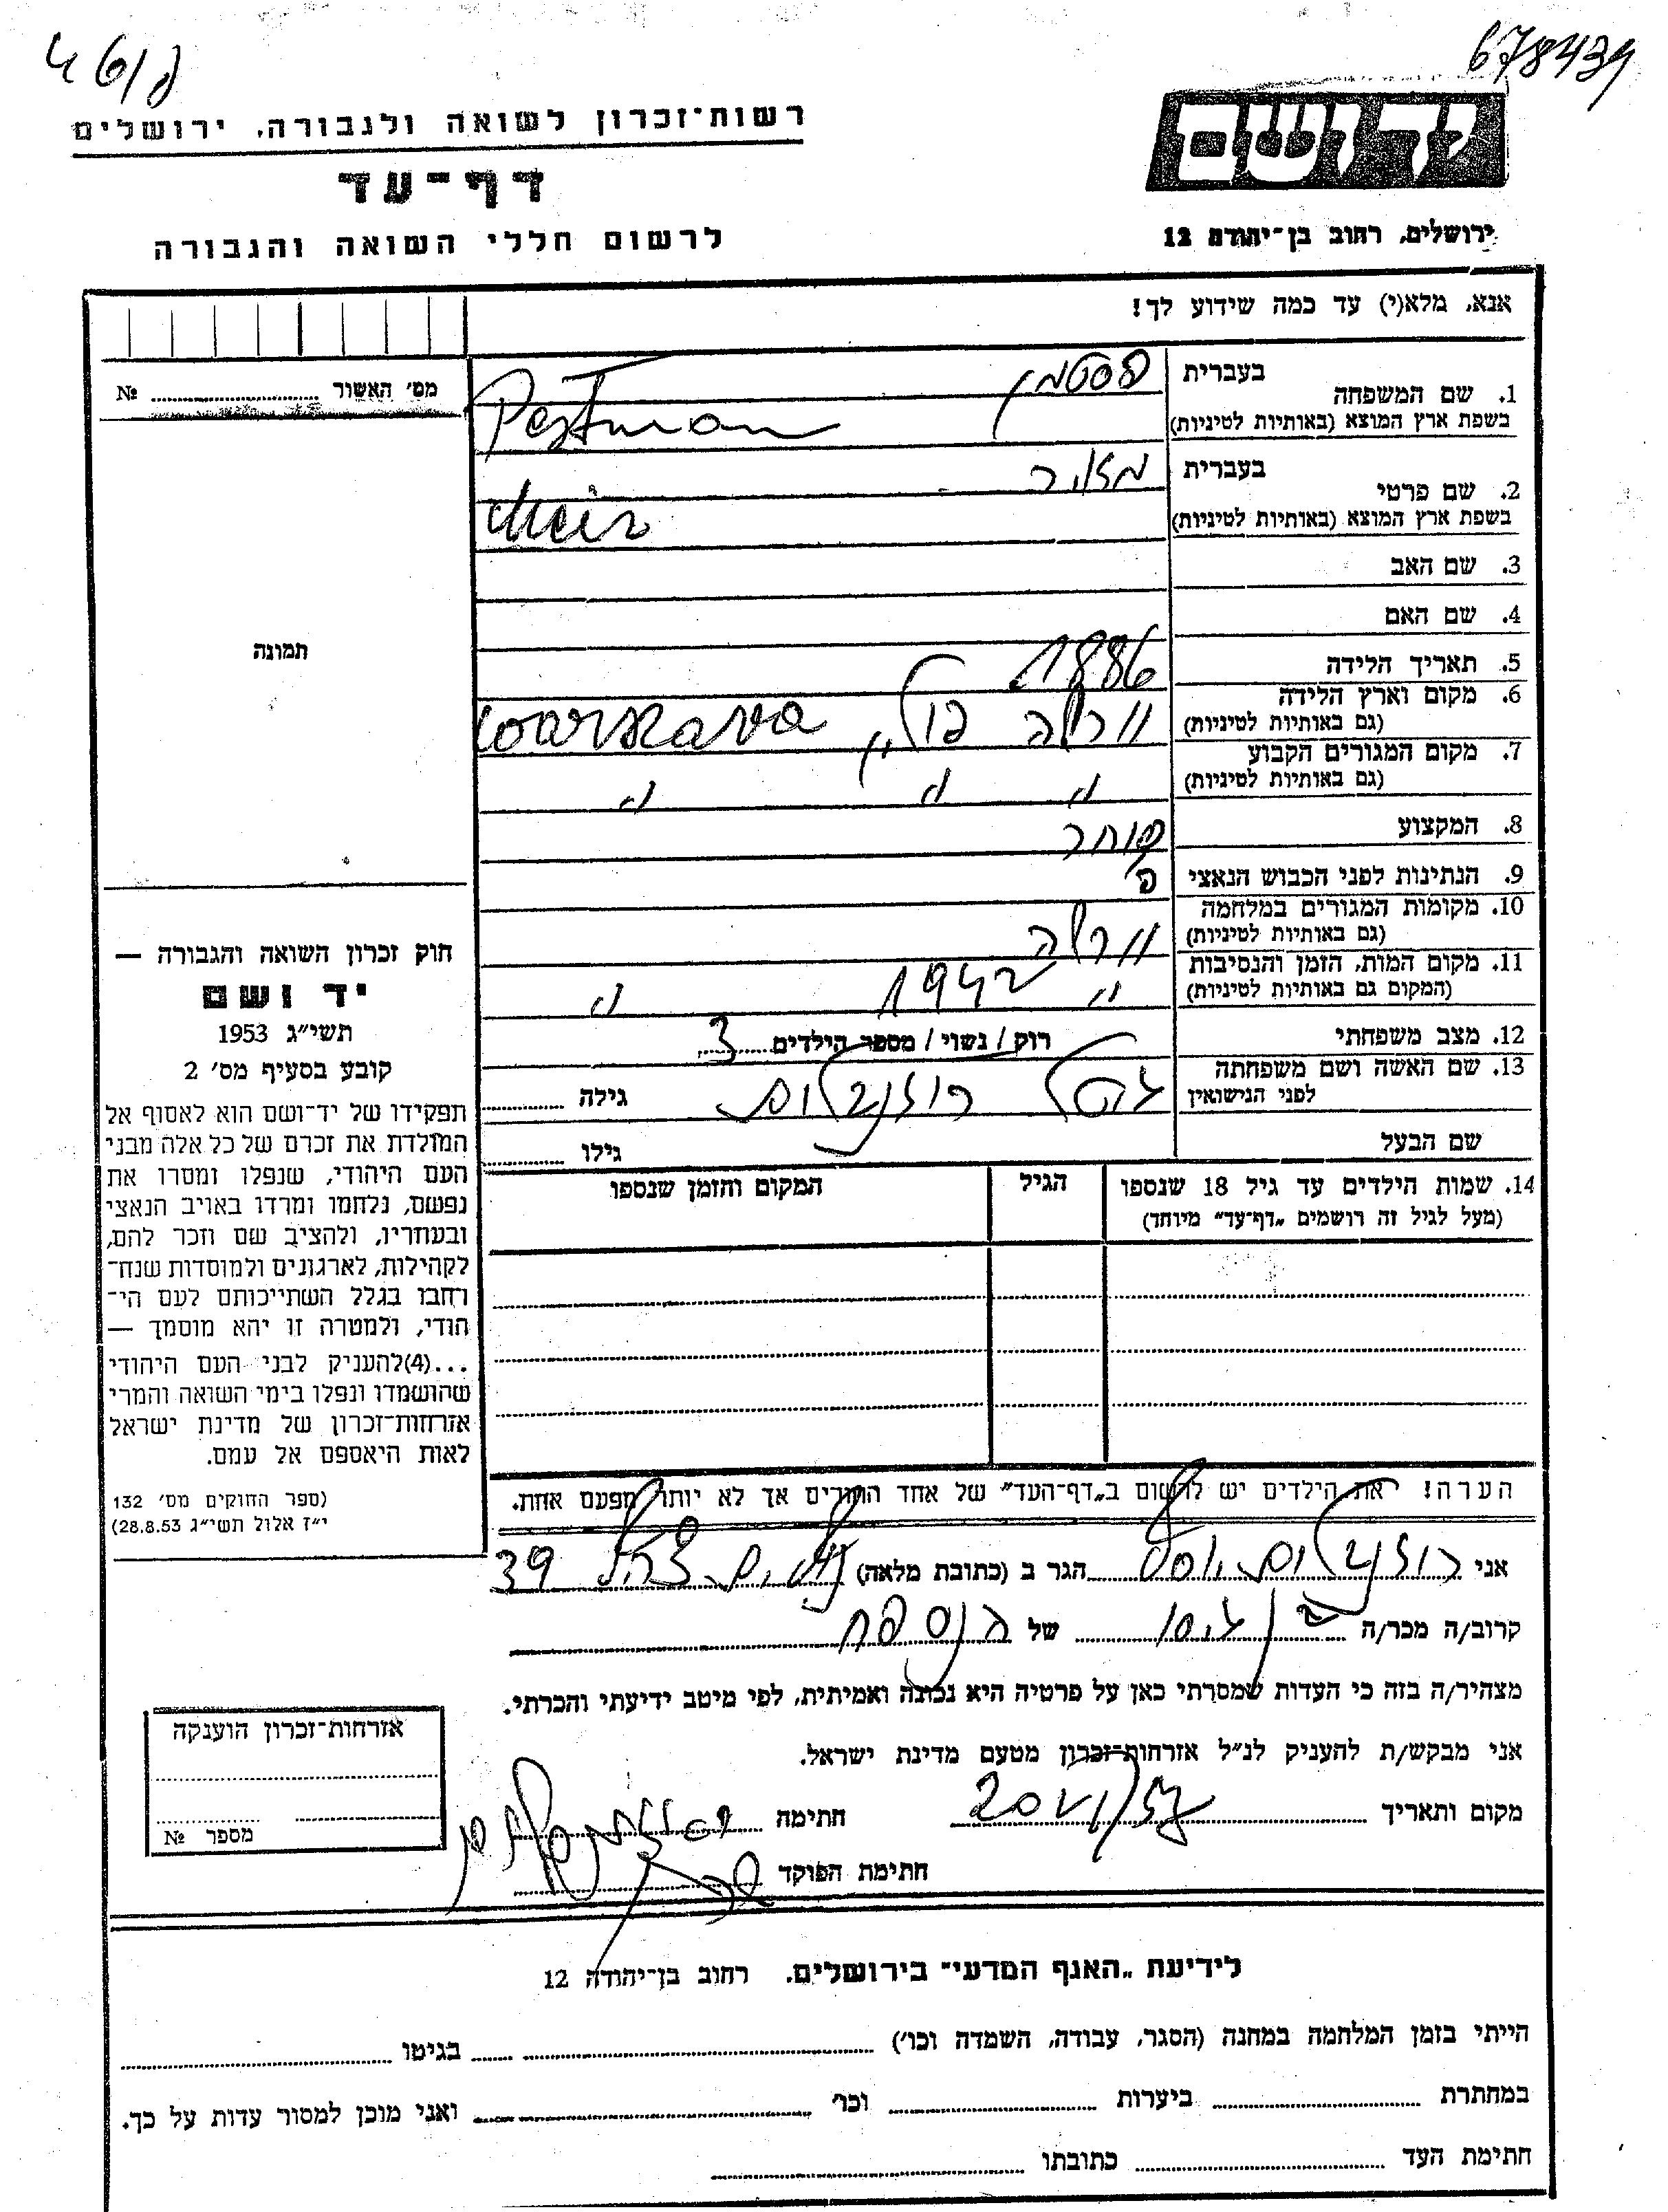 678434
רשות־זכרון לשואה ולגבורה, ירושלים
יד ושם
דף־עד
ירושלים, רחוב בן־יהודה 12
לרשום חללי השואה והגבורה
אנא, מלא(י) עד כמה שידוע לך!
מס׳ האשור № 
1. שם המשפחה
בעברית פסטמן
בשפת ארץ המוצא (באותיות לטיניות) Pestman
2. שם פרטי
בעברית מאיר
בשפת ארץ המוצא (באותיות לטיניות) Meir
3. שם האב
4. שם האם
תמונה
5. תאריך הלידה 1886
6. מקום וארץ הלידה
(גם באותיות לטיניות) ורשה פולין Warszava
7. מקום המגורים הקבוע
(גם באותיות לטיניות) " " "
8. המקצוע סוחר
9. הנתינות לפני הכבוש הנאצי פ׳
10. מקומות המגורים במלחמה
(גם באותיות לטיניות) ורשה
11. מקום המות, הזמן והנסיבות
(המקום גם באותיות לטיניות) " 1942 "
12. מצב משפחתי רוק / נשוי / מספר הילדים 3
13. שם האשה ושם משפחתה
לפני הנישואין רוזנבלום גילה
שם הבעל גילו
14. שמות הילדים עד גיל 18 שנספו
(מעל לגיל זה רושמים „דף־עד״ מיוחד)
הגיל
המקום והזמן שנספו
חוק זכרון השואה והגבורה —
יד ושם
תשי״ג 1953
קובע בסעיף מס׳ 2
תפקידו של יד־ושם הוא לאסוף אל
המולדת את זכרם של כל אלה מבני
העם היהודי, שנפלו ומסרו את
נפשם, נלחמו ומרדו באויב הנאצי
ובעוזריו, ולהציב שם וזכר להם,
לקהילות, לארגונים ולמוסדות שנח־
רחבו בגלל השתייכותם לעם הי־
הודי, ולמטרה זו יהא מוסמך —
...(4)להעניק לבני העם היהודי
שהושמדו ונפלו בימי השואה והמרי
אזרחות־זכרון של מדינת ישראל
לאות היאספם אל עמם.
(ספר החוקים מס׳ 132
י״ז אלול תשי״ג 28.8.53)
הערה! את הילדים יש לרשום ב„דף־העד״ של אחד ההורים אך לא יותר מפעם אחת.
אני רוזנבלום הגר ב (כתובת מלאה) 39
קרוב/ה מכר/ה של הנספה
מצהיר/ה בזה כי העדות שמסרתי כאן על פרטיה היא נכונה ואמיתית, לפי מיטב ידיעתי והכרתי.
אני מבקש/ת להעניק לנ״ל אזרחות־זכרון מטעם מדינת ישראל.
מקום ותאריך חתימה
חתימת הפוקד
אזרחות־זכרון הוענקה
מספר №
לידיעת „האגף המדעי״ בירושלים. רחוב בן־יהודה 12
הייתי בזמן המלחמה במחנה (הסגר, עבודה, השמדה וכו׳) בגיטו
במחתרת ביערות וכו׳ ואני מוכן למסור עדות על כך.
חתימת העד כתובתו